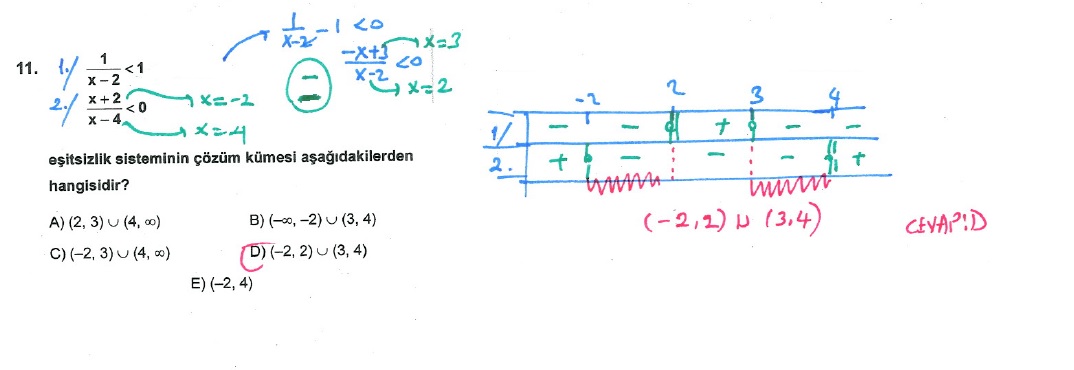 11. 1./ 1/(x – 2) < 1
2./ (x + 2)/(x – 4) < 0
x=-2
x=-4
1/(x-2) -1 <0
(-x+3)/(x-2) <0
x=3
x=2
–
–
eşitsizlik sisteminin çözüm kümesi aşağıdakilerden
hangisidir?
A) (2, 3) ∪ (4, ∞) B) (–∞, –2) ∪ (3, 4)
C) (–2, 3) ∪ (4, ∞) D) (–2, 2) ∪ (3, 4)
E) (–2, 4)
-2 2 3 4
1/ – – + – –
2. + – – – +
(-2,2) ∪ (3,4) CEVAP:D